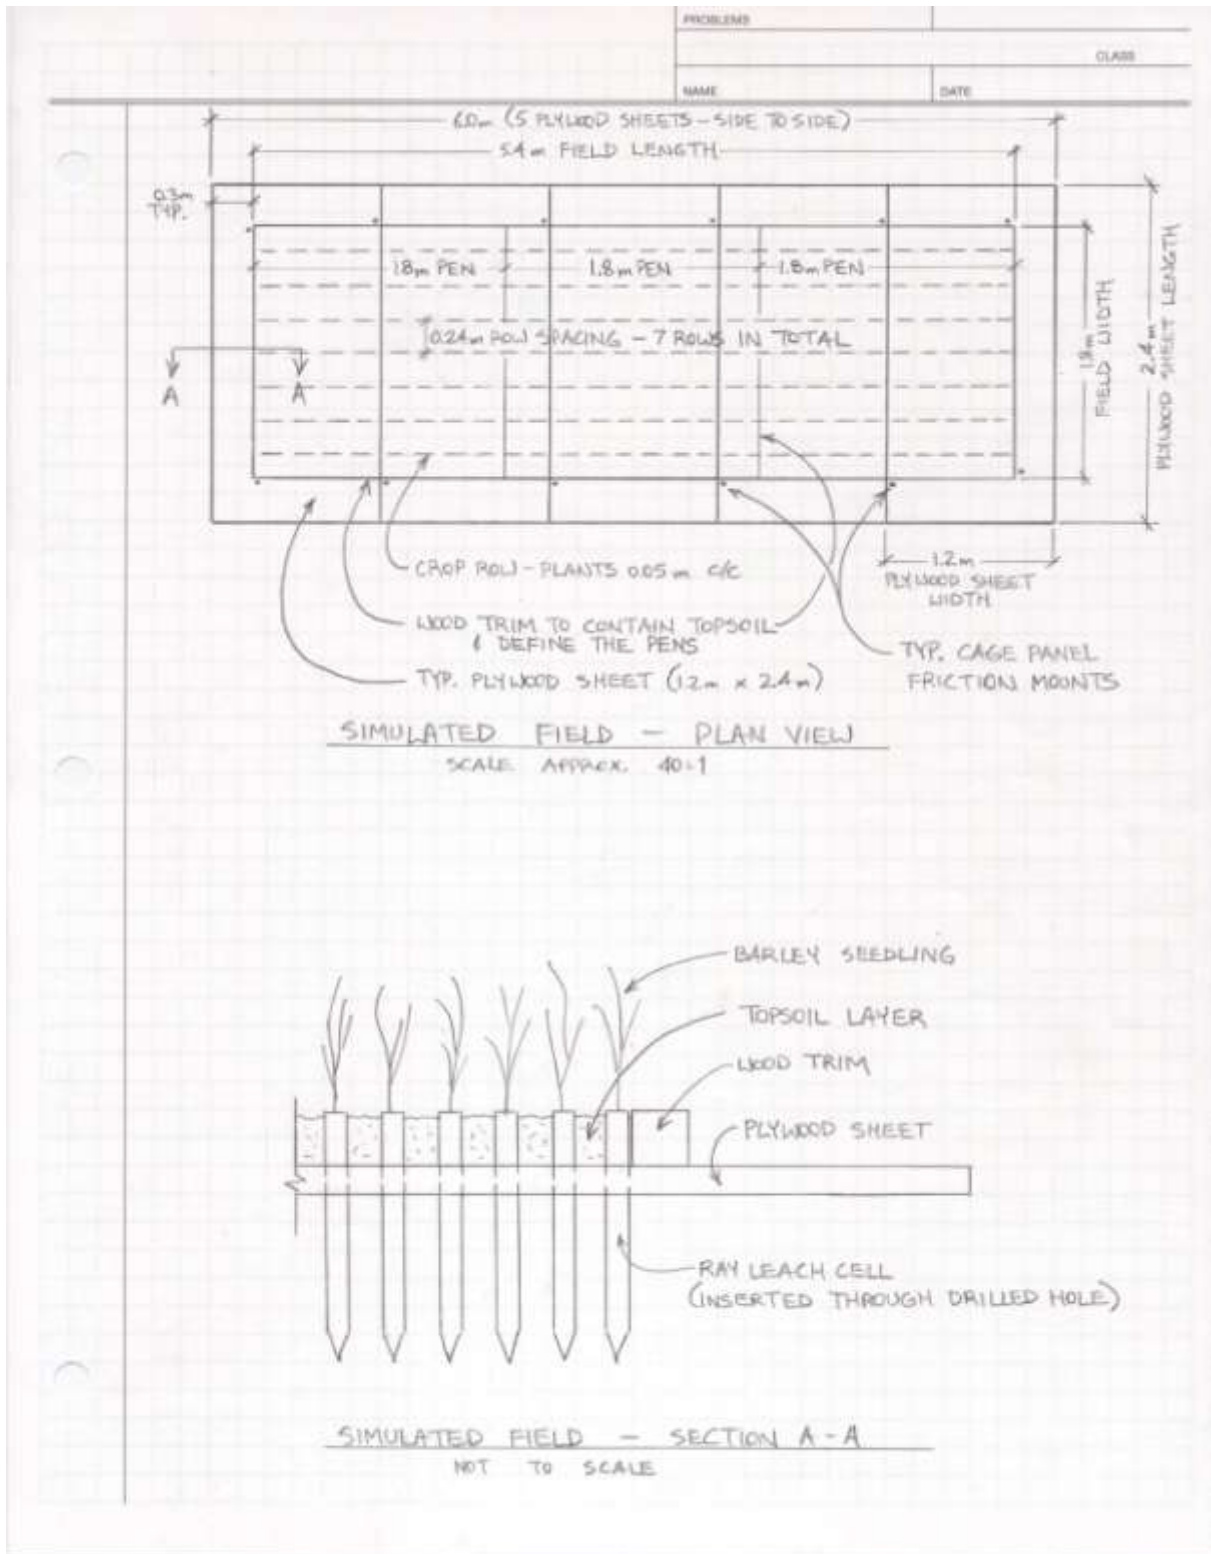 PROBLEMS
CLASS
NAME
DATE
6.0m (5 PLYWOOD SHEETS - SIDE TO SIDE)
5.4m FIELD LENGTH
0.3m
TYP.
1.8m PEN
1.8m PEN
1.8m PEN
0.24m ROW SPACING - 7 ROWS IN TOTAL
A
A
1.8m
FIELD WIDTH
2.4m
PLYWOOD SHEET LENGTH
CROP ROW - PLANTS 0.05m c/c
1.2m
PLYWOOD SHEET
WIDTH
WOOD TRIM TO CONTAIN TOPSOIL
& DEFINE THE PENS
TYP. CAGE PANEL
FRICTION MOUNTS
TYP. PLYWOOD SHEET (1.2m x 2.4m)
SIMULATED FIELD - PLAN VIEW
SCALE APPROX. 40:1
BARLEY SEEDLING
TOPSOIL LAYER
WOOD TRIM
PLYWOOD SHEET
RAY LEACH CELL
(INSERTED THROUGH DRILLED HOLE)
SIMULATED FIELD - SECTION A-A
NOT TO SCALE